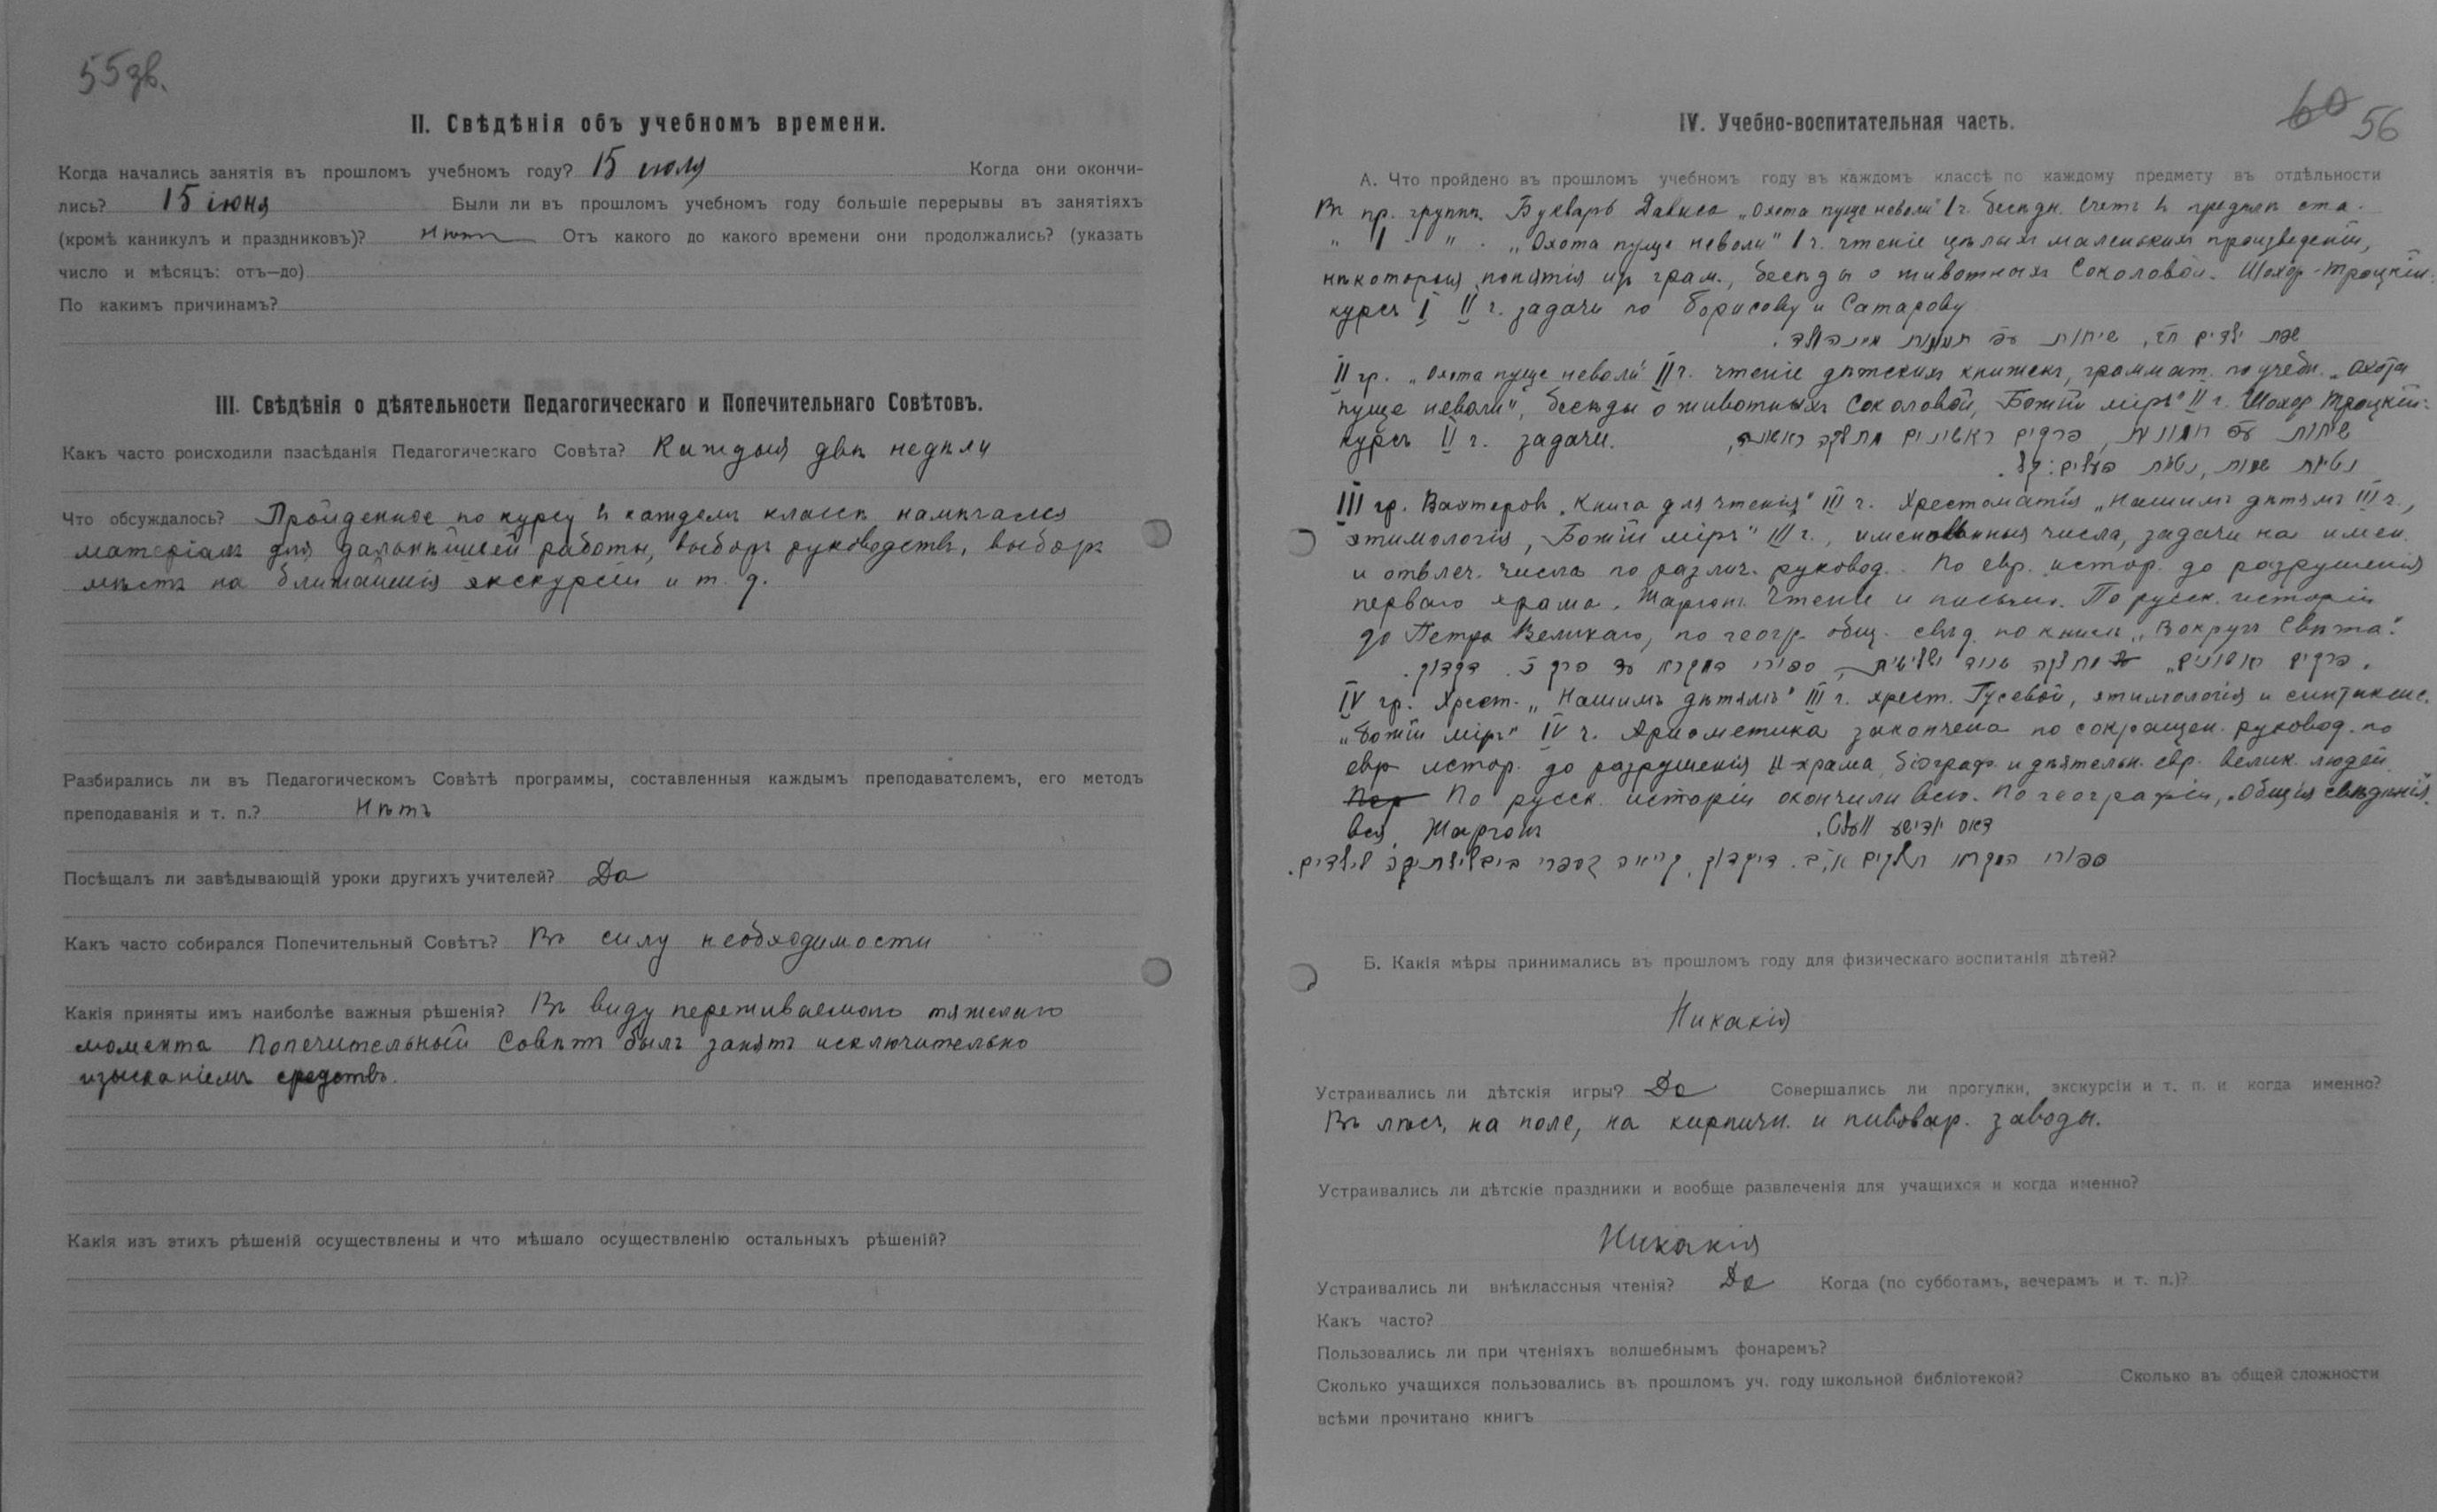 55зв.
II. Свѣдѣнія объ учебномъ времени.
Когда начались занятія въ прошломъ учебномъ году? 15 июля Когда они окончи-
лись? 15 іюня Были ли въ прошломъ учебномъ году большіе перерывы въ занятіяхъ
(кромѣ каникулъ и праздниковъ)? Нѣтъ Отъ какого до какого времени они продолжались? (указать
число и мѣсяцъ: отъ—до)
По какимъ причинамъ?
III. Свѣдѣнія о дѣятельности Педагогическаго и Попечительнаго Совѣтовъ.
Какъ часто роисходили пзасѣданія Педагогическаго Совѣта? Каждыя двѣ недѣли
Что обсуждалось? Пройденное по курсу въ каждомъ классѣ намѣчался
матеріалъ для дальнѣйшей работы, выборъ руководствъ, выборъ
мѣстъ на ближайшія экскурсіи и т. д.
Разбирались ли въ Педагогическомъ Совѣтѣ программы, составленныя каждымъ преподавателемъ, его методъ
преподаванія и т. п.? Нѣтъ
Посѣщалъ ли завѣдывающій уроки другихъ учителей? Да
Какъ часто собирался Попечительный Совѣтъ? Въ силу необходимости
Какія приняты имъ наиболѣе важныя рѣшенія? Въ виду переживаемаго тяжелаго
момента Попечительный Совѣтъ былъ занятъ исключительно
изысканіемъ средствъ.
Какія изъ этихъ рѣшеній осуществлены и что мѣшало осуществленію остальныхъ рѣшеній?
60 56
IV. Учебно-воспитательная часть.
А. Что пройдено въ прошломъ учебномъ году въ каждомъ классѣ по каждому предмету въ отдѣльности
Въ пр. группѣ. Букварь "Охота пуще неволи" I ч. бесѣды. Счетъ въ предѣлѣ ста.
" I " . "Охота пуще неволи" I ч. чтеніе цѣлыхъ маленькихъ произведеній,
нѣкоторыя понятія изъ грам., бесѣды о животныхъ Соколовой. Шохоръ-Троцкій
курсъ I II ч. задачи по Борисову и Сатарову
שפת ילדים חד, שיחות עפ תמונות
II гр. "Охота пуще неволи" II ч. чтеніе дѣтскихъ книжекъ, граммат. по учебн. "Охота
пуще неволи", бесѣды о животныхъ Соколовой, Божій міръ" II ч. Шохоръ Троцкій
курсъ II ч. задачи. שיחות עפ תמונות, פרקים ראשונים מחלקה ראשונה,
נטית שמות, נטית פעלים: קל.
III гр. Вахтеровъ "Книга для чтенія" III ч. Хрестоматія "Нашимъ дѣтямъ III ч.,
этимологія, Божій міръ" III ч., именованныя числа, задачи на имен.
и отвлеч. числа по различ. руковод. По евр. истор. до разрушенія
перваго храма. Жаргонъ. Чтеніе и письмо. По русск. исторіи
до Петра Великаго, по геогр. общ. свѣд. по книгѣ "Вокругъ Свѣта".
פרקים ראשונים, ספורי המקרא עד פרק דקדוק.
IV гр. Хрест. "Нашимъ дѣтямъ" III ч. хрест. Гусевой, этимологія и синтаксис.
"Божій міръ" IV ч. Ариѳметика закончена по сокращен. руковод. по
евр истор. до разрушенія II храма, біограф. и дѣятельн. евр. велик. людей.
По русск. исторіи окончили всю. По географіи, "Общія свѣдѣнія"
вся, Жаргонъ דאס יודישע ווארט.
ספורי המקרא חלקים א, ב. דיקדוק, קריאה בספרי לילדים.
Б. Какія мѣры принимались въ прошломъ году для физическаго воспитанія дѣтей?
Никакія
Устраивались ли дѣтскія игры? Да Совершались ли прогулки, экскурсіи и т. п. и когда именно?
Въ лѣсъ, на поле, на кирпичн. и пивовар. заводы.
Устраивались ли дѣтскіе праздники и вообще развлеченія для учащихся и когда именно?
Никакія
Устраивались ли внѣклассныя чтенія? Да Когда (по субботамъ, вечерамъ и т. п.)?
Какъ часто?
Пользовались ли при чтеніяхъ волшебнымъ фонаремъ?
Сколько учащихся пользовались въ прошломъ уч. году школьной библіотекой? Сколько въ общей сложности
всѣми прочитано книгъ